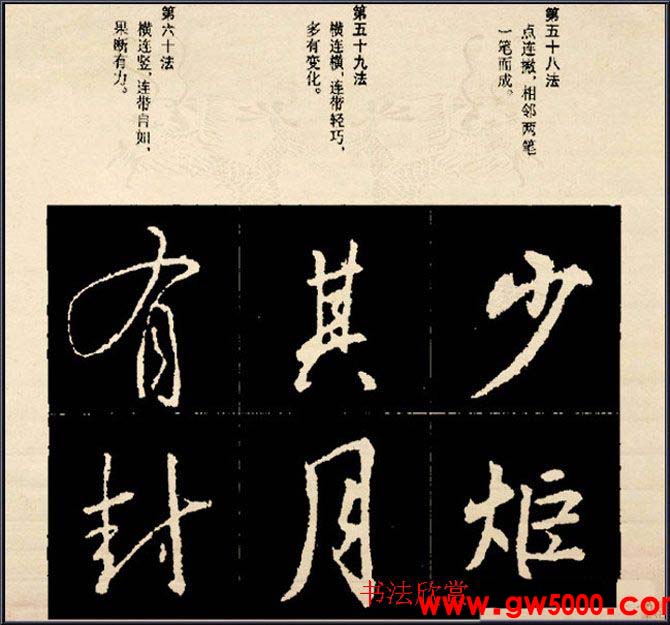 第五十八法
点连撇，相邻两笔
一笔而成。
第五十九法
横连横，连带轻巧，
多有变化。
第六十法
横连竖，连带自如，
果断有力。
少
炬
其
月
有
封
书法欣赏
www.gw5000.com